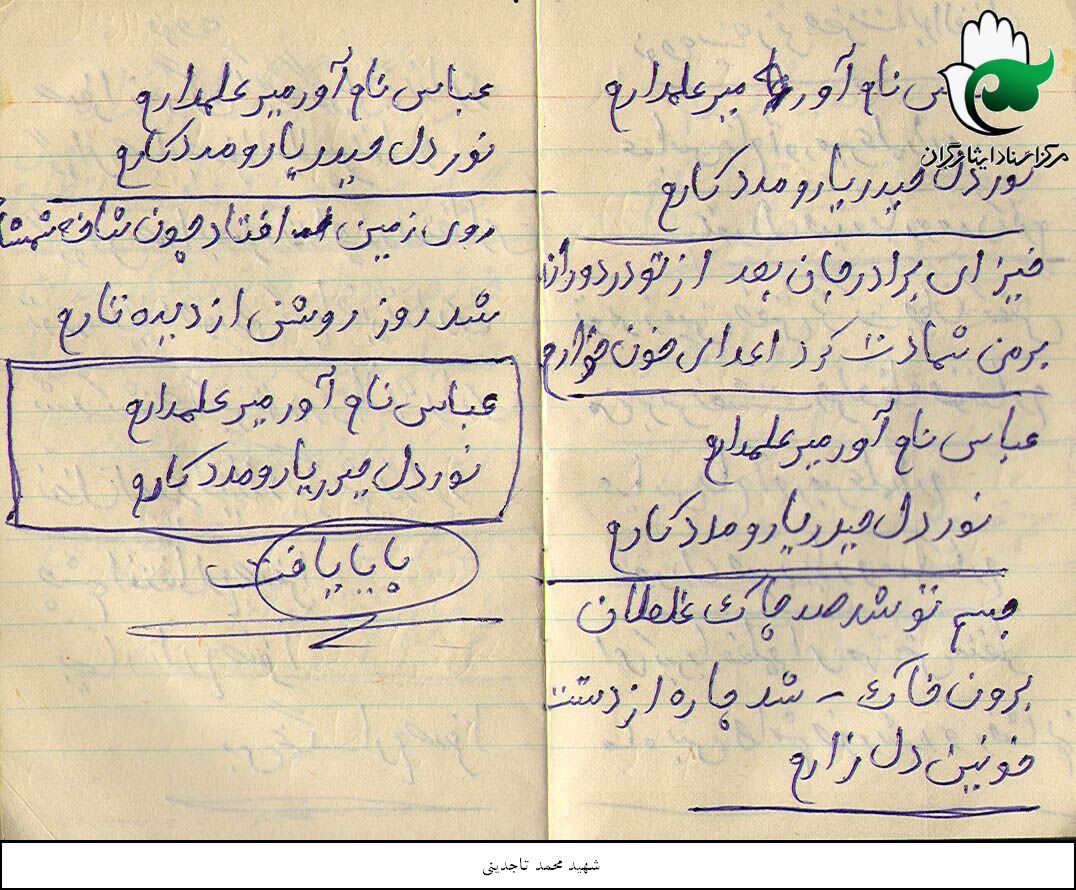 عباس نام آور میر علمدارم
نور دل حیدر یار و مدد کارم
خیز ای برادر جان بعد از تو در دوران
بر من شماتت کرد اعدای خون خوارم
عباس نام آور میر علمدارم
نور دل حیدر یار و مدد کارم
جسم تو شد صد چاک غلطان
برون خاک - شد چاره از دست
خونین دل زارم
عباس نام آور میر علمدارم
نور دل حیدر یار و مدد کارم
روی زمین افتاد چون شاخه شمشا
شد روز روشن از دیده تارم
عباس نام آور میر علمدارم
نور دل حیدر یار و مدد کارم
پایا یافت
مرکز اسناد ایثارگران
شهید محمد تاجدینی